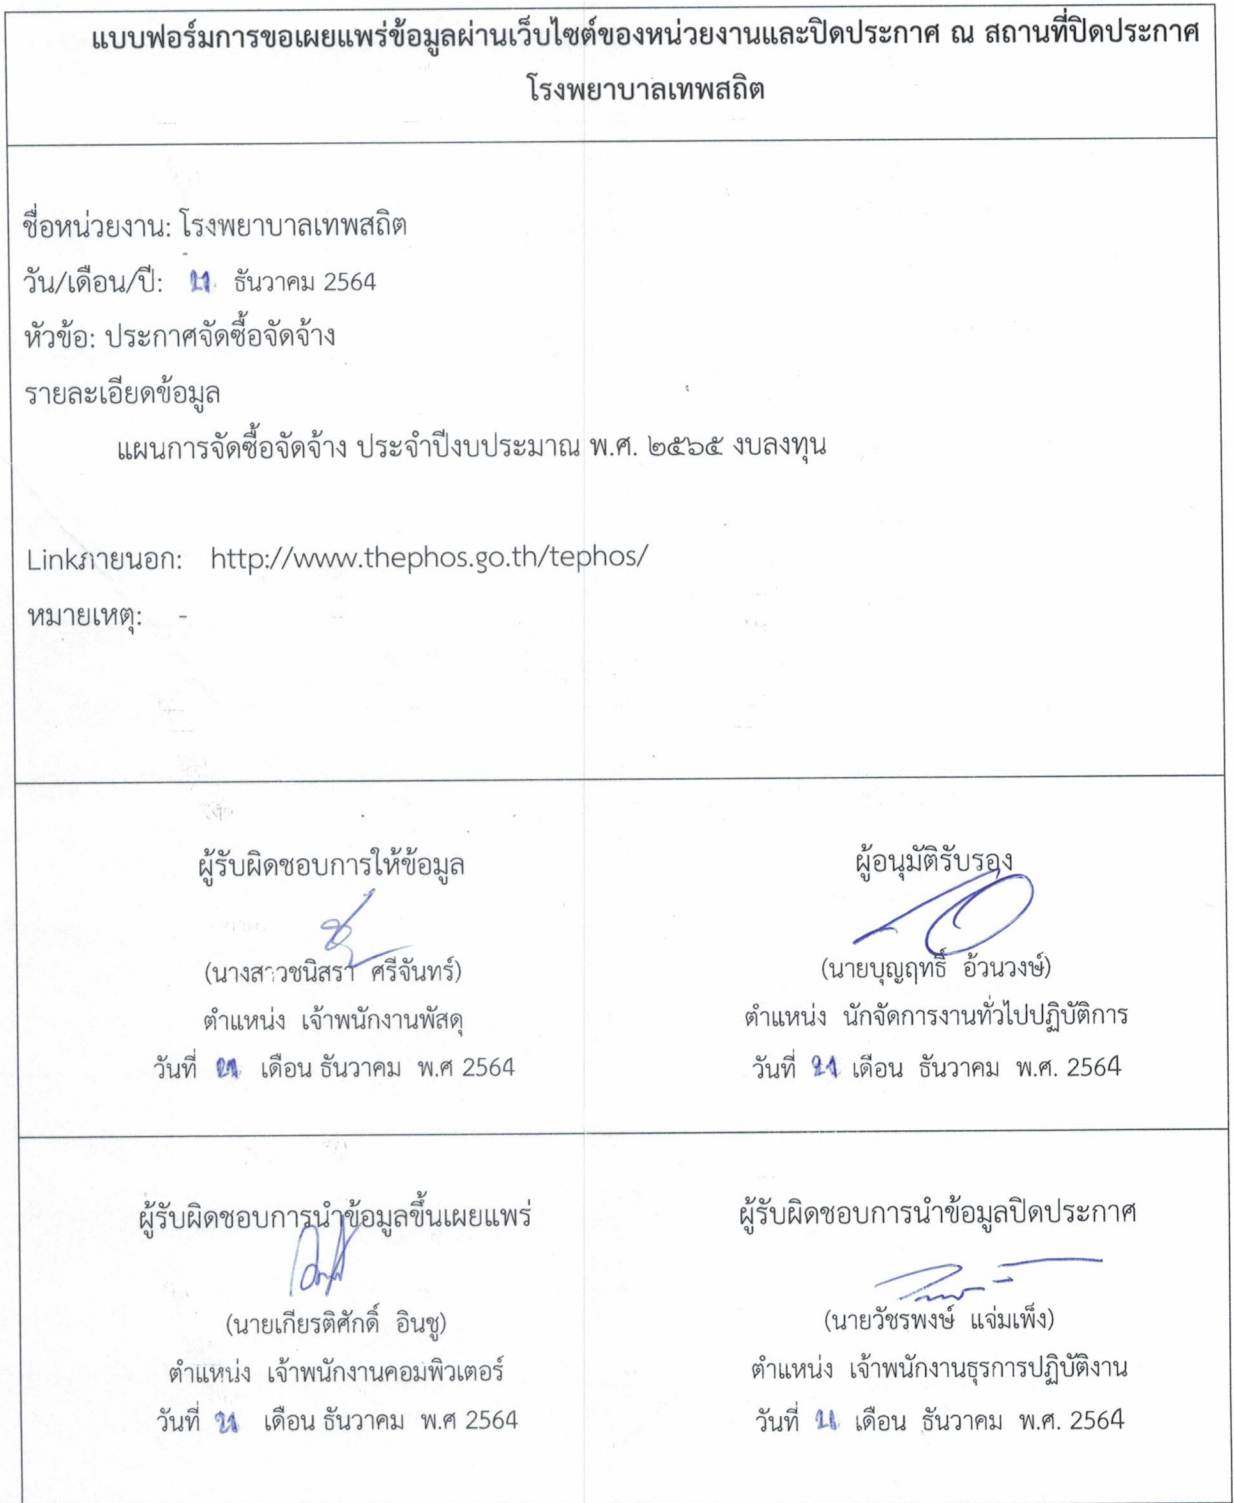 แบบฟอร์มการขอเผยแพร่ข้อมูลผ่านเว็บไซต์ของหน่วยงานและปิดประกาศ ณ สถานที่ปิดประกาศ
โรงพยาบาลเทพสถิต
ชื่อหน่วยงาน: โรงพยาบาลเทพสถิต
วัน/เดือน/ปี: ธันวาคม 2564
หัวข้อ: ประกาศจัดซื้อจัดจ้าง
รายละเอียดข้อมูล
แผนการจัดซื้อจัดจ้าง ประจำปีงบประมาณ พ.ศ. ๒๕๖๕ งบลงทุน
Linkภายนอก: http://www.thephos.go.th/tephos/
หมายเหตุ: -
ผู้รับผิดชอบการให้ข้อมูล
(นางสาวชนิสรา ศรีจันทร์)
ตำแหน่ง เจ้าพนักงานพัสดุ
วันที่ เดือน ธันวาคม พ.ศ 2564
ผู้อนุมัติรับรอง
(นายบุญฤทธิ์ อ้วนวงษ์)
ตำแหน่ง นักจัดการงานทั่วไปปฏิบัติการ
วันที่ 21 เดือน ธันวาคม พ.ศ. 2564
ผู้รับผิดชอบการนำข้อมูลขึ้นเผยแพร่
(นายเกียรติศักดิ์ อินชู)
ตำแหน่ง เจ้าพนักงานคอมพิวเตอร์
วันที่ 21 เดือน ธันวาคม พ.ศ 2564
ผู้รับผิดชอบการนำข้อมูลปิดประกาศ
(นายวัชรพงษ์ แจ่มเพ็ง)
ตำแหน่ง เจ้าพนักงานธุรการปฏิบัติงาน
วันที่ เดือน ธันวาคม พ.ศ. 2564